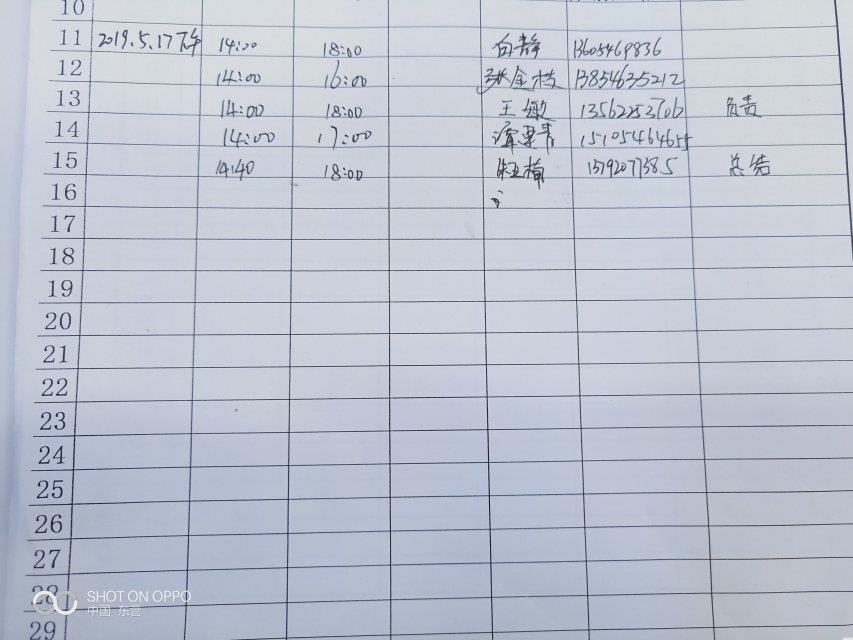 10
11 2019.5.17下午 14:00 18:00 白静 13605469836
12 14:00 16:00 张金枝 13854635212
13 14:00 18:00 王敏 13562253706 负责
14 14:00 17:00 15105464655
15 14:40 18:00 13792077585 总结
16
17
18
19
20
21
22
23
24
25
26
27
28
29
SHOT ON OPPO
中国 东营